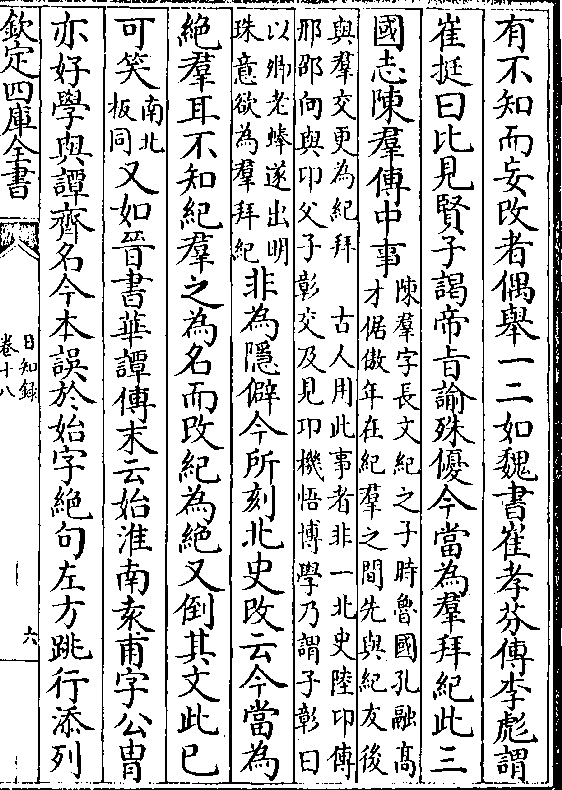 有不知而妄改者偶舉一二如魏書崔孝芬傳李彪謂
崔挺曰比見賢子謁帝㫖諭殊優今當為羣拜紀此三
國志陳羣傳中事
陳羣字長文紀之子時魯國孔融髙
才倨傲年在紀羣之間先與紀友後
與羣交更為紀拜　古人用此事者非一北史陸卬傳
邢邵向與卬父子彰交及見卬機悟博學乃謂子彰曰
以卿老蜯遂出明
珠意欲為羣拜紀
非為隱僻今所刻北史改云今當為
絶羣耳不知紀羣之為名而改紀為絶又倒其文此已
可笑
南北
板同
又如晉書華譚傳末云始淮南袁甫字公胄
亦好學與譚齊名今本誤於始字絶句左方跳行添列
欽定四庫全書
日知録
卷十八
六